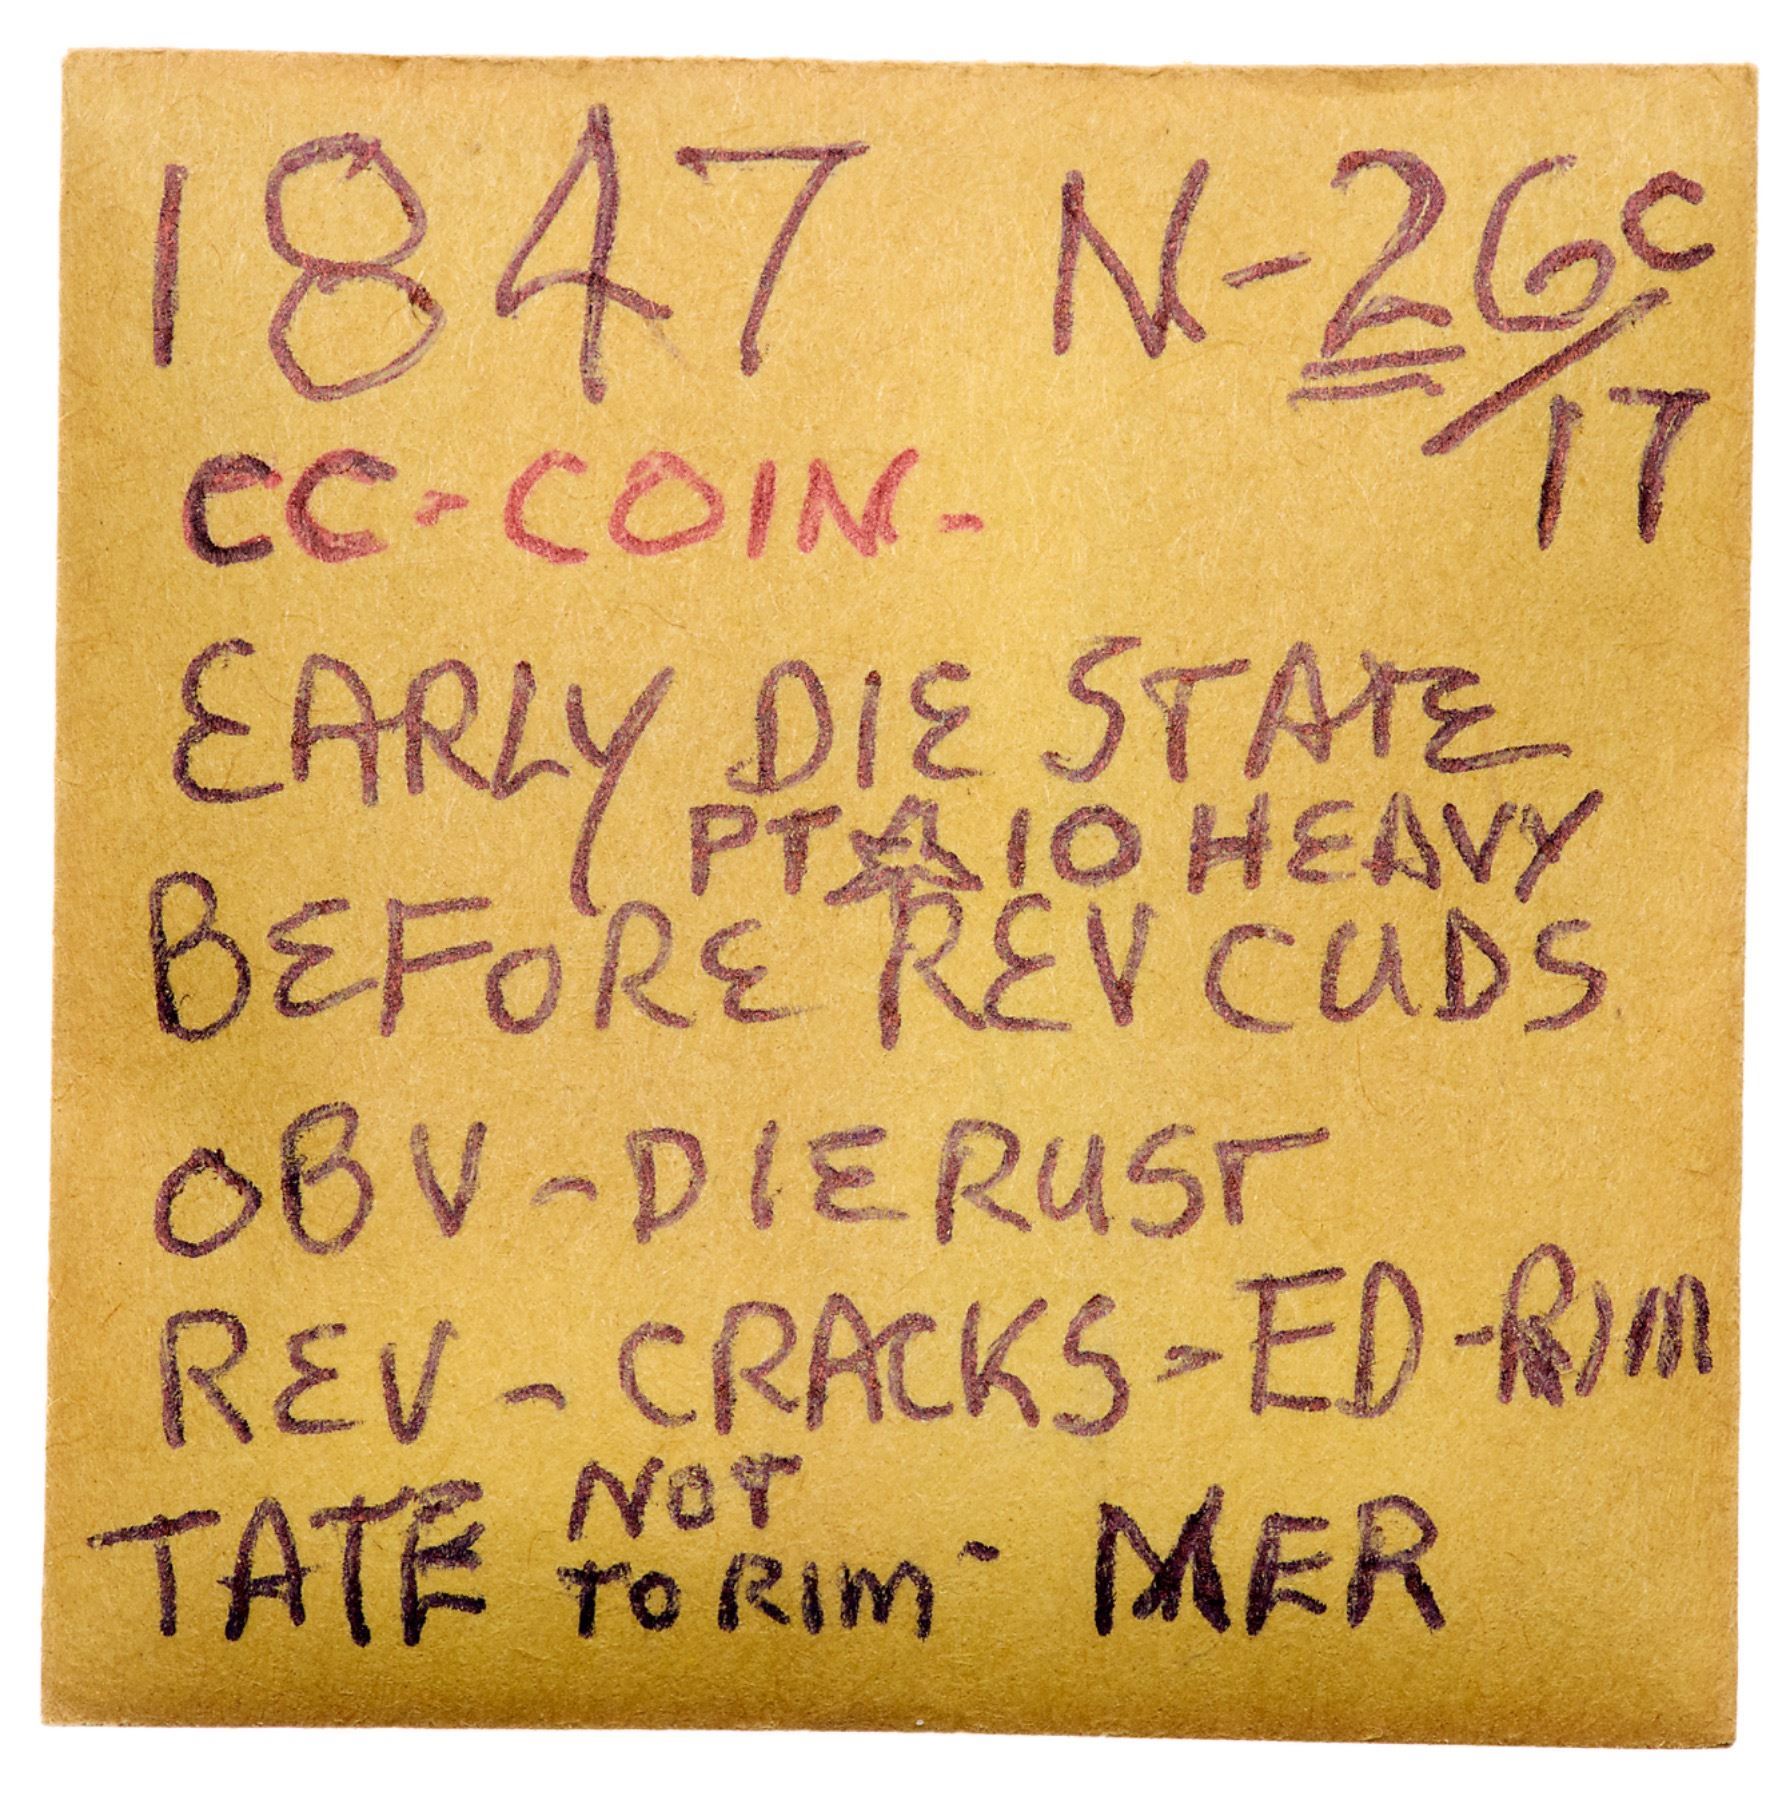 1847 N-26c/17
CC-COIN-
EARLY DIE STATE
PT ☆ 10 HEAVY
BEFORE REV CUDS
OBV-DIE RUST
REV-CRACKS-ED-RIM
TATE NOT TO RIM- MER